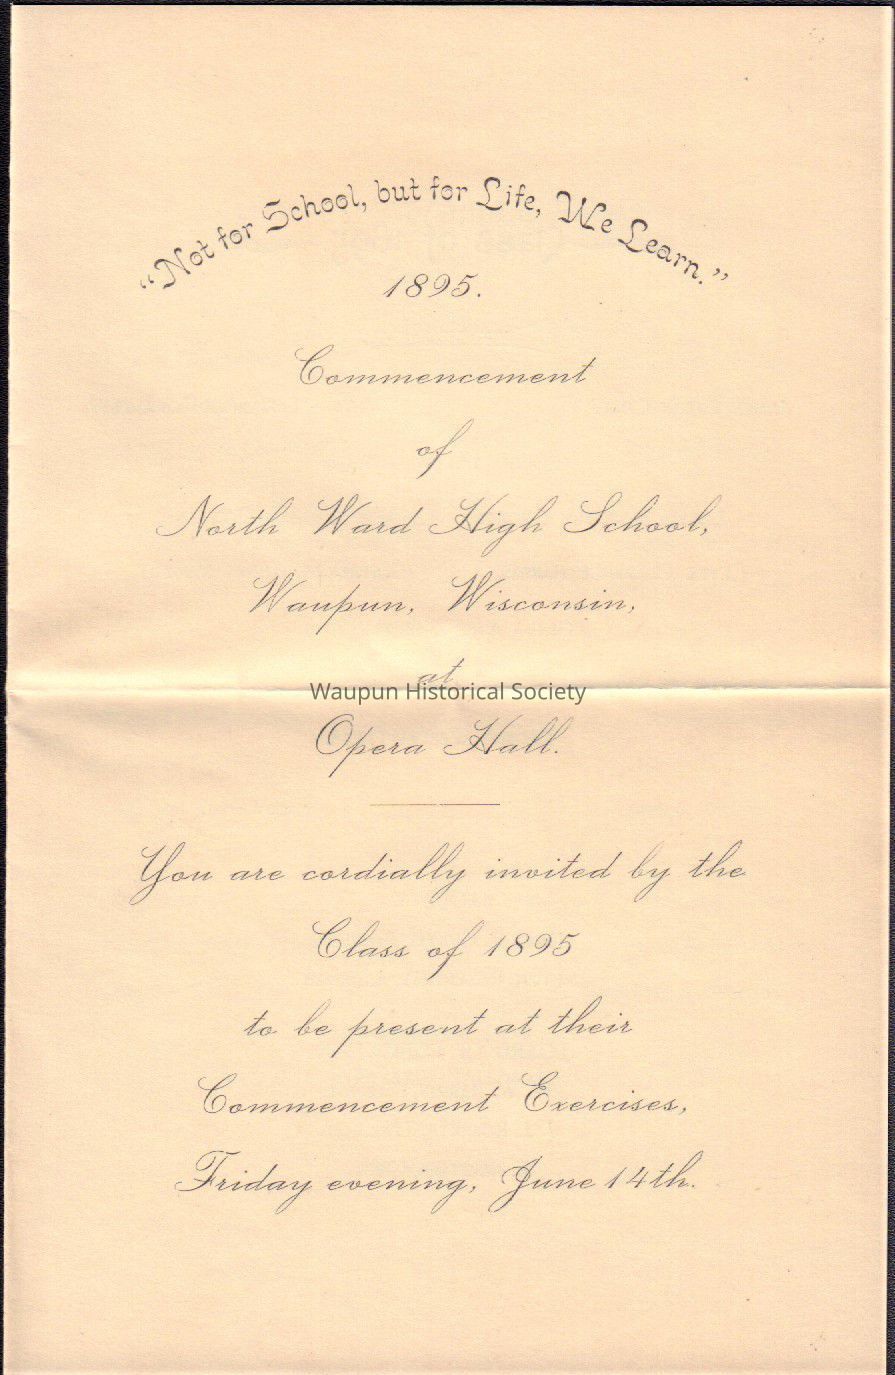 "Not for School, but for Life, We Learn."
1895.
Commencement
of
North Ward High School,
Waupun, Wisconsin,
at
Waupun Historical Society
Opera Hall.
You are cordially invited by the
Class of 1895
to be present at their
Commencement Exercises,
Friday evening, June 14th.